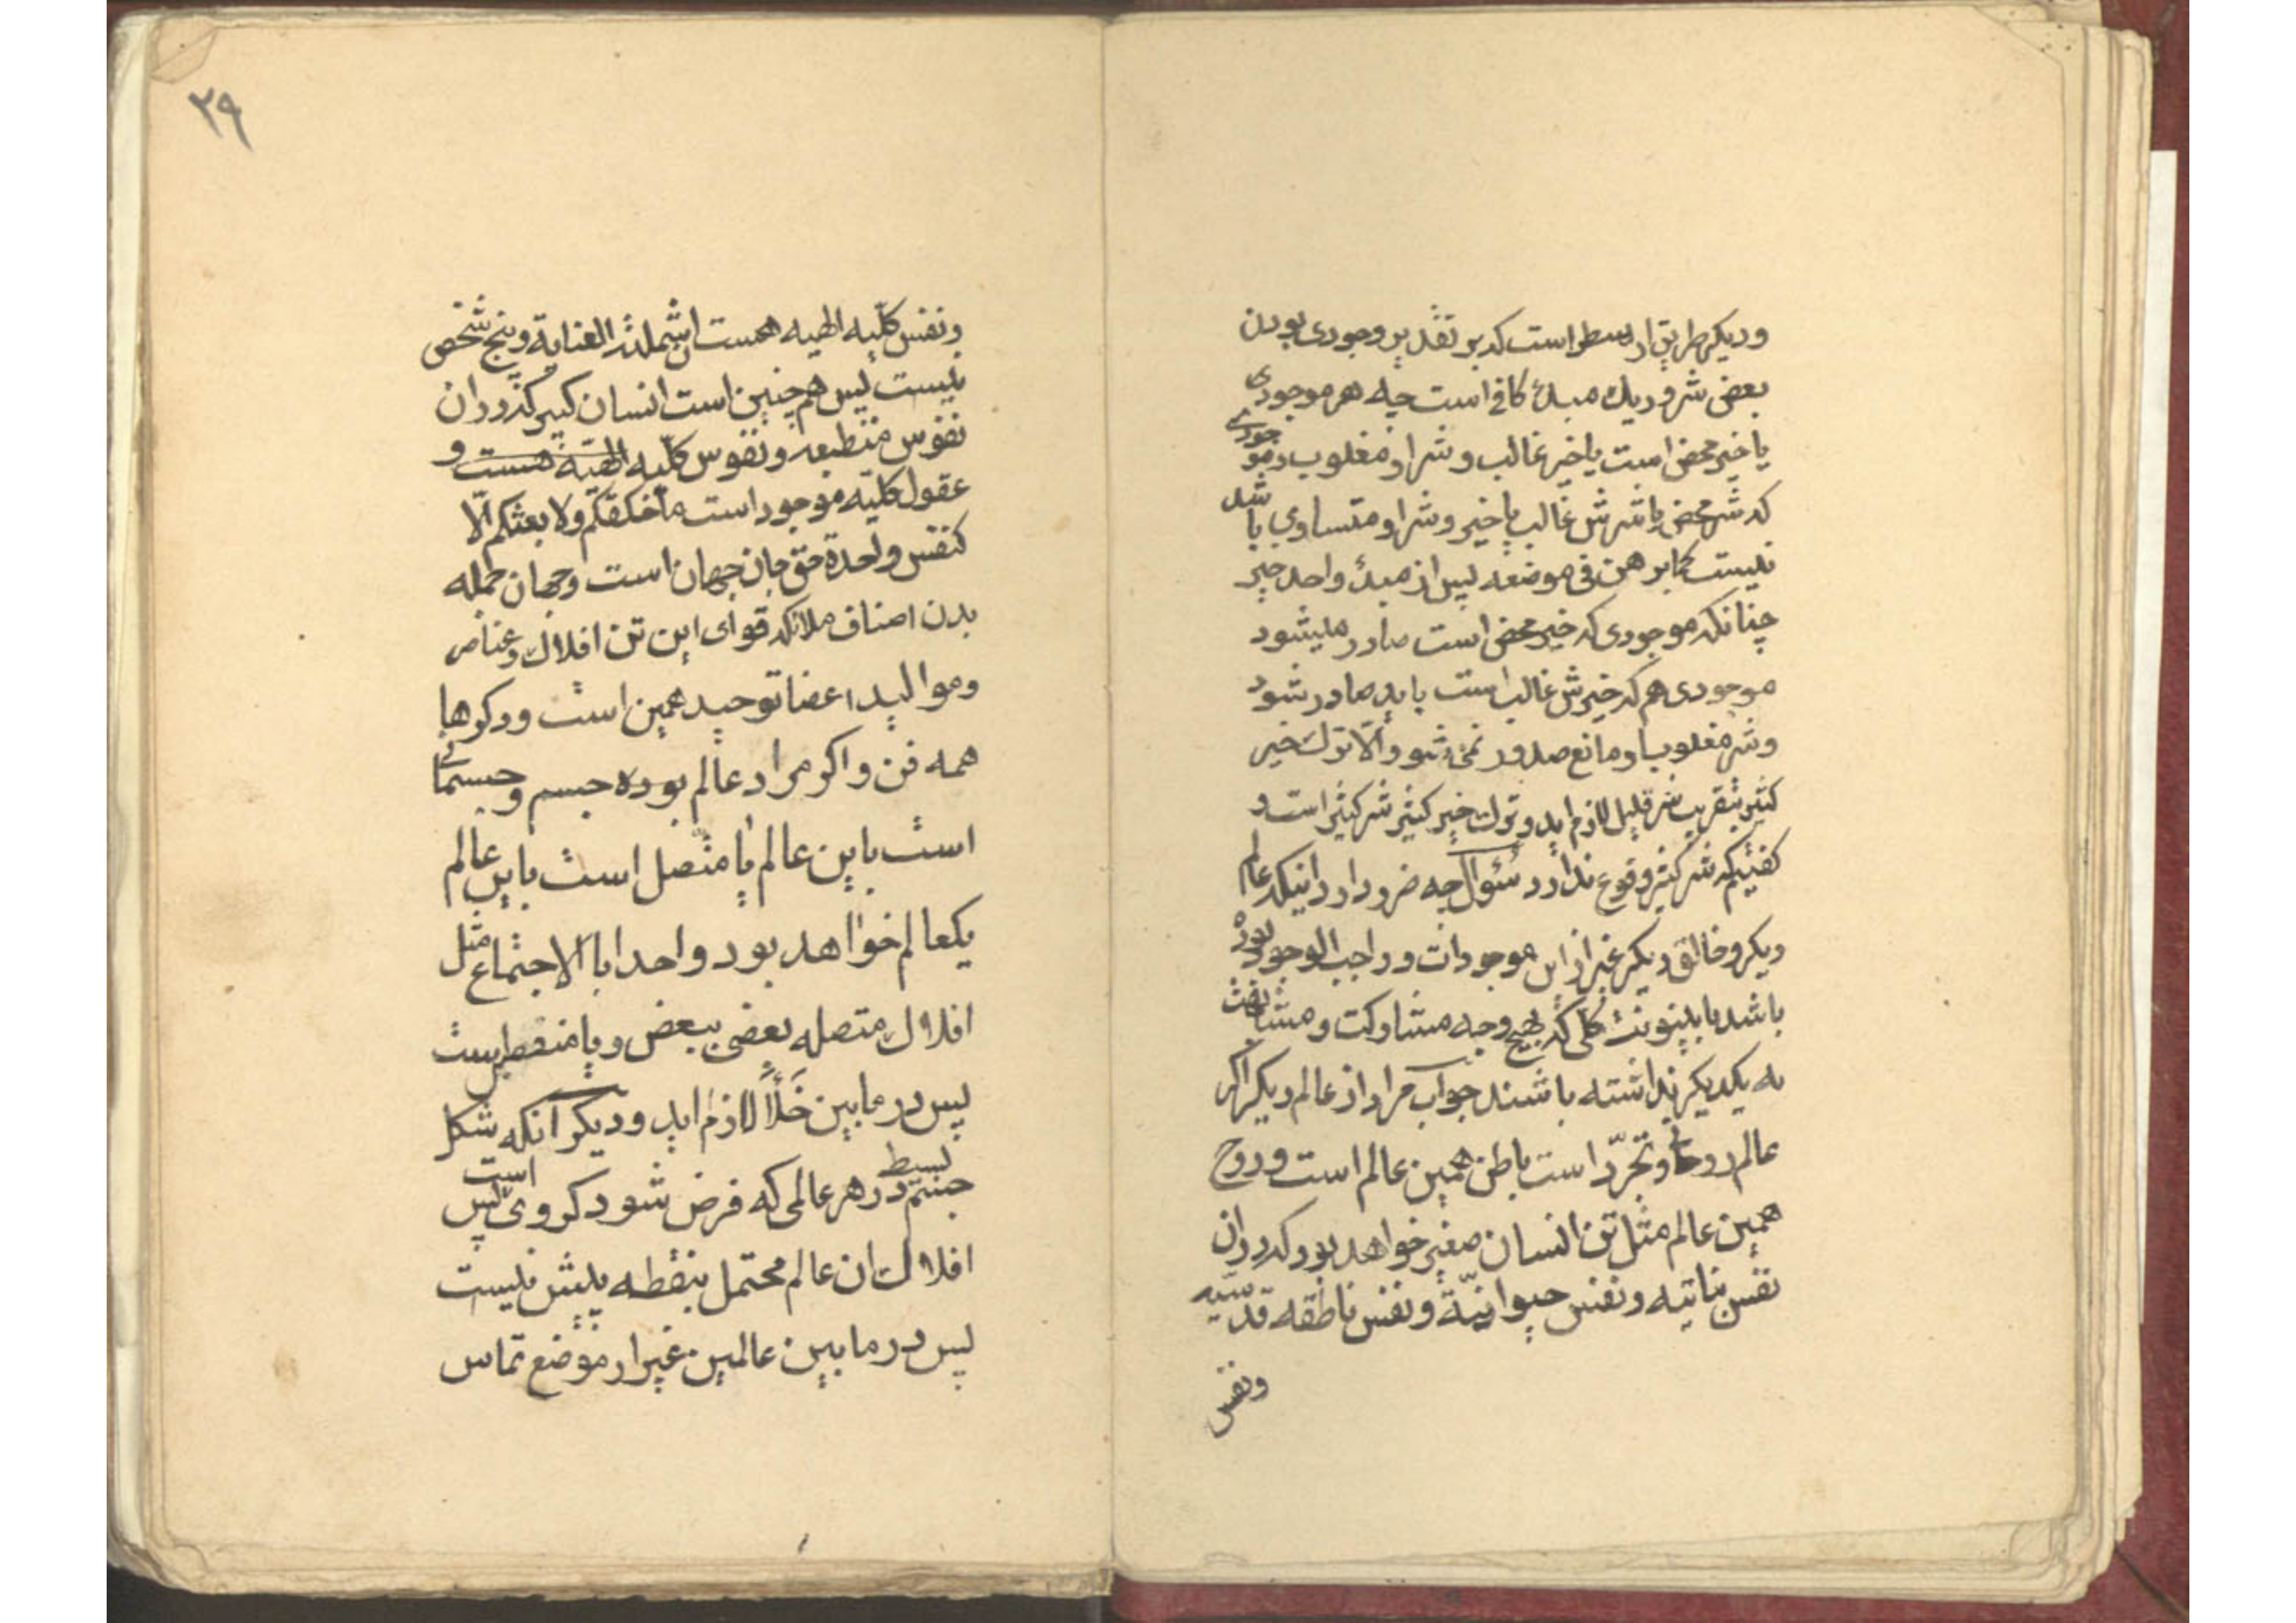 ودیکر طریق ارسطو است که بر تقدیر وجودی بودن
بعض شرور یك مبدأ کافی است چه هر موجودی
یا خیر محض است یا خیر غالب و شر او مغلوب و موجودی
که شر محض یا شرش غالب یا خیر و شر او متساوی باشد
نیست کما برهن فی موضعه پس از مبدأ واحد خیر
چنانکه موجودی که خیر محض است صادر میشود
موجودی هم که خیرش غالب است باید صادر شود
و شر مغلوب او مانع صدور نمی شود والا ترك خیر
کثیر بتقریب شر قلیل لازم اید و ترك خیر کثیر شر کثیر است و
کفتیم که شر کثیر وقوع ندارد سئوال چه ضرور دارد اینکه عالم
دیکر و خالق دیکر غیر از این موجودات و واجب الوجود بوده
باشد با بینونت کلی که بهیچ وجه مشارکت و مشابهت
به یکدیکر نداشته باشند جواب مراد از عالم دیکر اکر
عالم روحانی و تجرّد است باطن همین عالم است و روح
همین عالم مثل تن انسان صغیر خواهد بود که در ان
نفس نباتیه و نفس حیوانیّة و نفس ناطقه قدسیّه
ونفس
۳۹
ونفس کلّیه الهیه هست ان شملته العنایة و پنج شخص
نیست پس هم چنین است انسان کبیر که در ان
نفوس منطبعه و نفوس کلّیه الهیّه هست و
عقول کلیّه موجود است ما خلقکم ولا بعثکم الّا
کنفس واحدة حق جان جهان است وجهان جمله
بدن اصناف ملائکه قوای این تن افلاك و عناصر
و موالید اعضا توحید همین است و دکرها
همه فن و اکر مراد عالم بوده جسم و جسمانی
است با این عالم یا متصل است با این عالم
یکعالم خواهد بود واحدا بالاجتماع مثل
افلاك متصله بعضی ببعض و یا منفصل است
پس در مابین خَلَأ لازم اید و دیکر آنکه شکل
جسم بسیط در هر عالمی که فرض شود کروی است پس
افلاك ان عالم محتمل بنقطه بیش نیست
پس در مابین عالمین غیر از موضع تماس